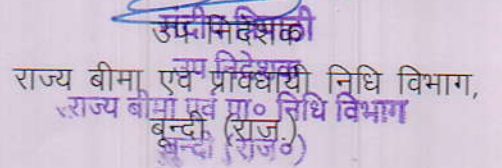 संदीप सिंह सोलंकी
उप निदेशक
उप निदेशक
राज्य बीमा एवं प्रावधायी निधि विभाग,
राज्य बीमा एवं प्रा० निधि विभाग
बून्दी (राज.)
बून्दी (राज०)